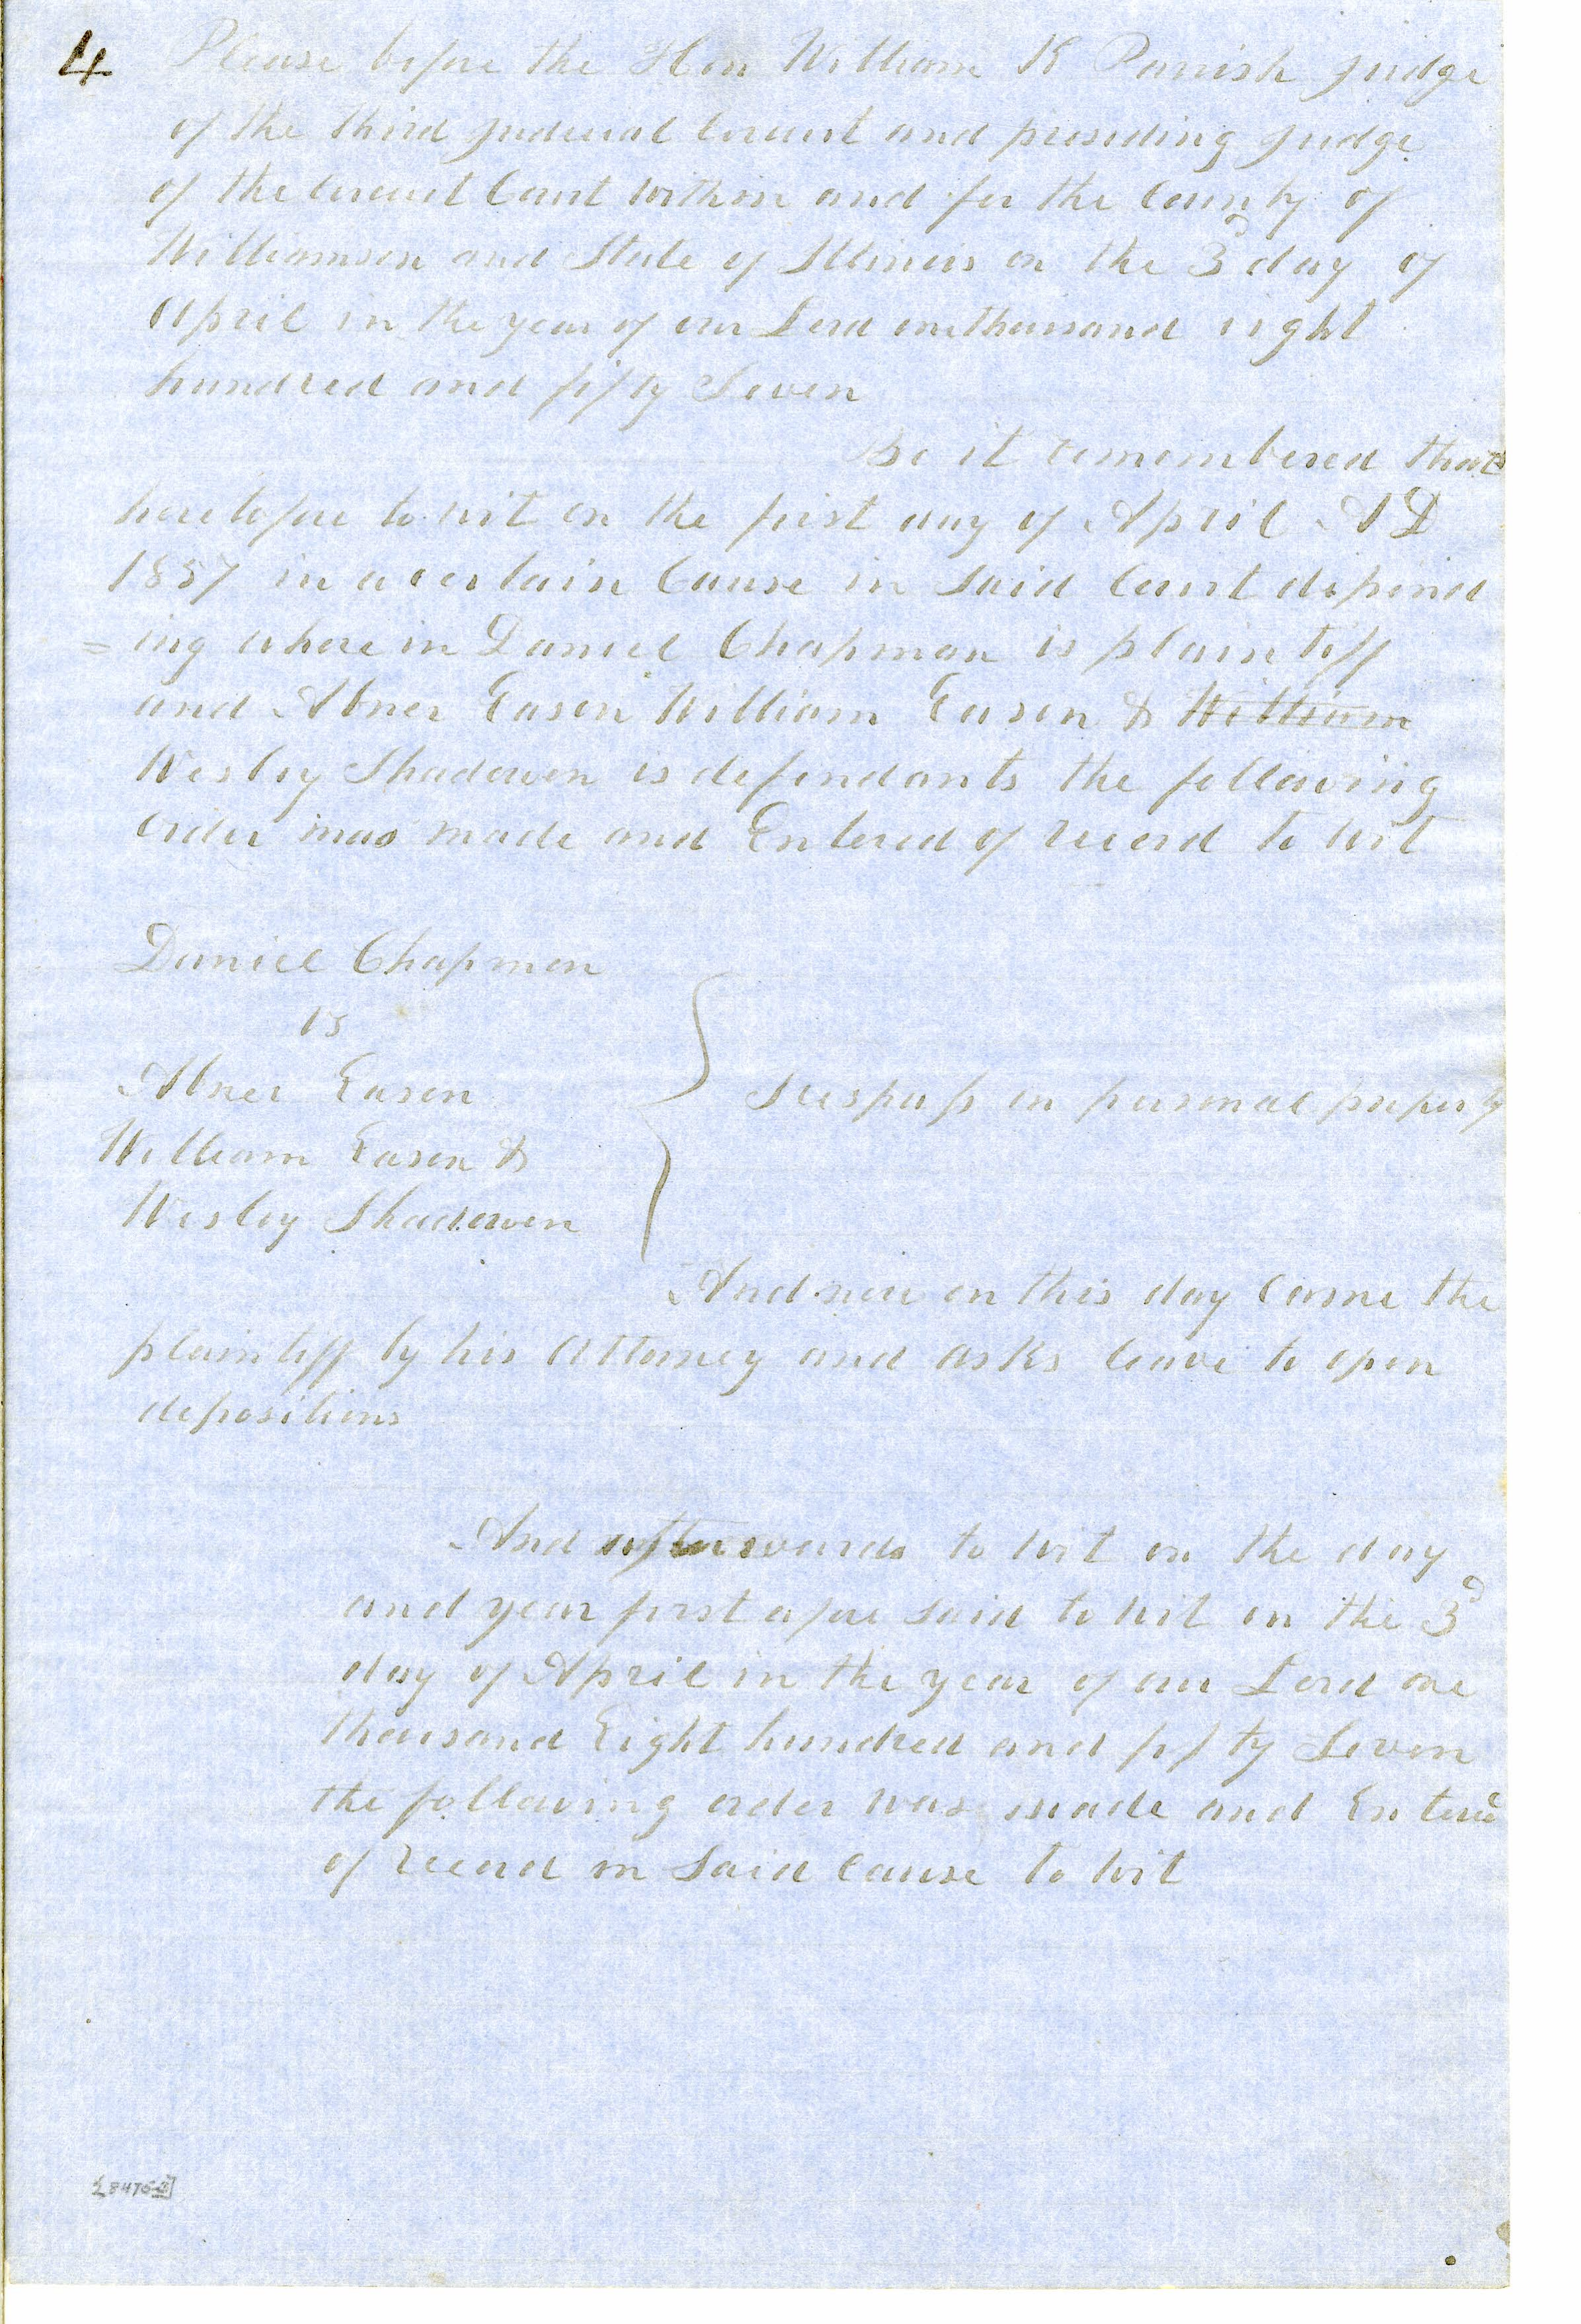 4 Please before the Hon William K Parrish Judge
of the third judicial Circuit and presiding Judge
of the Circuit Court within and for the County of
Williamson and State of Illinois on the 3d day of
April in the year of our Lord one thousand eight
hundred and fifty Seven
Be it remembered that
heretofore to wit on the first day of April A D
1857 in a certain Cause in Said Court depend
=ing where in Daniel Chapman is plaintiff
and Abner Eason William Eason & William
Wesley Shadowen is defendants the following
order was made and Entered of record to wit
Daniel Chapman
vs
Abner Eason
William Eason &
Wesley Shadowen
Trespass on personal property
And now on this day Came the
plaintiff by his Attorney and asks leave to open
depositions
And afterwards to wit on the day
and year first afore said to wit on the 3d
day of April in the year of our Lord one
thousand Eight hundred and fifty Seven
the following order was made and Entered
of record in Said Cause to wit